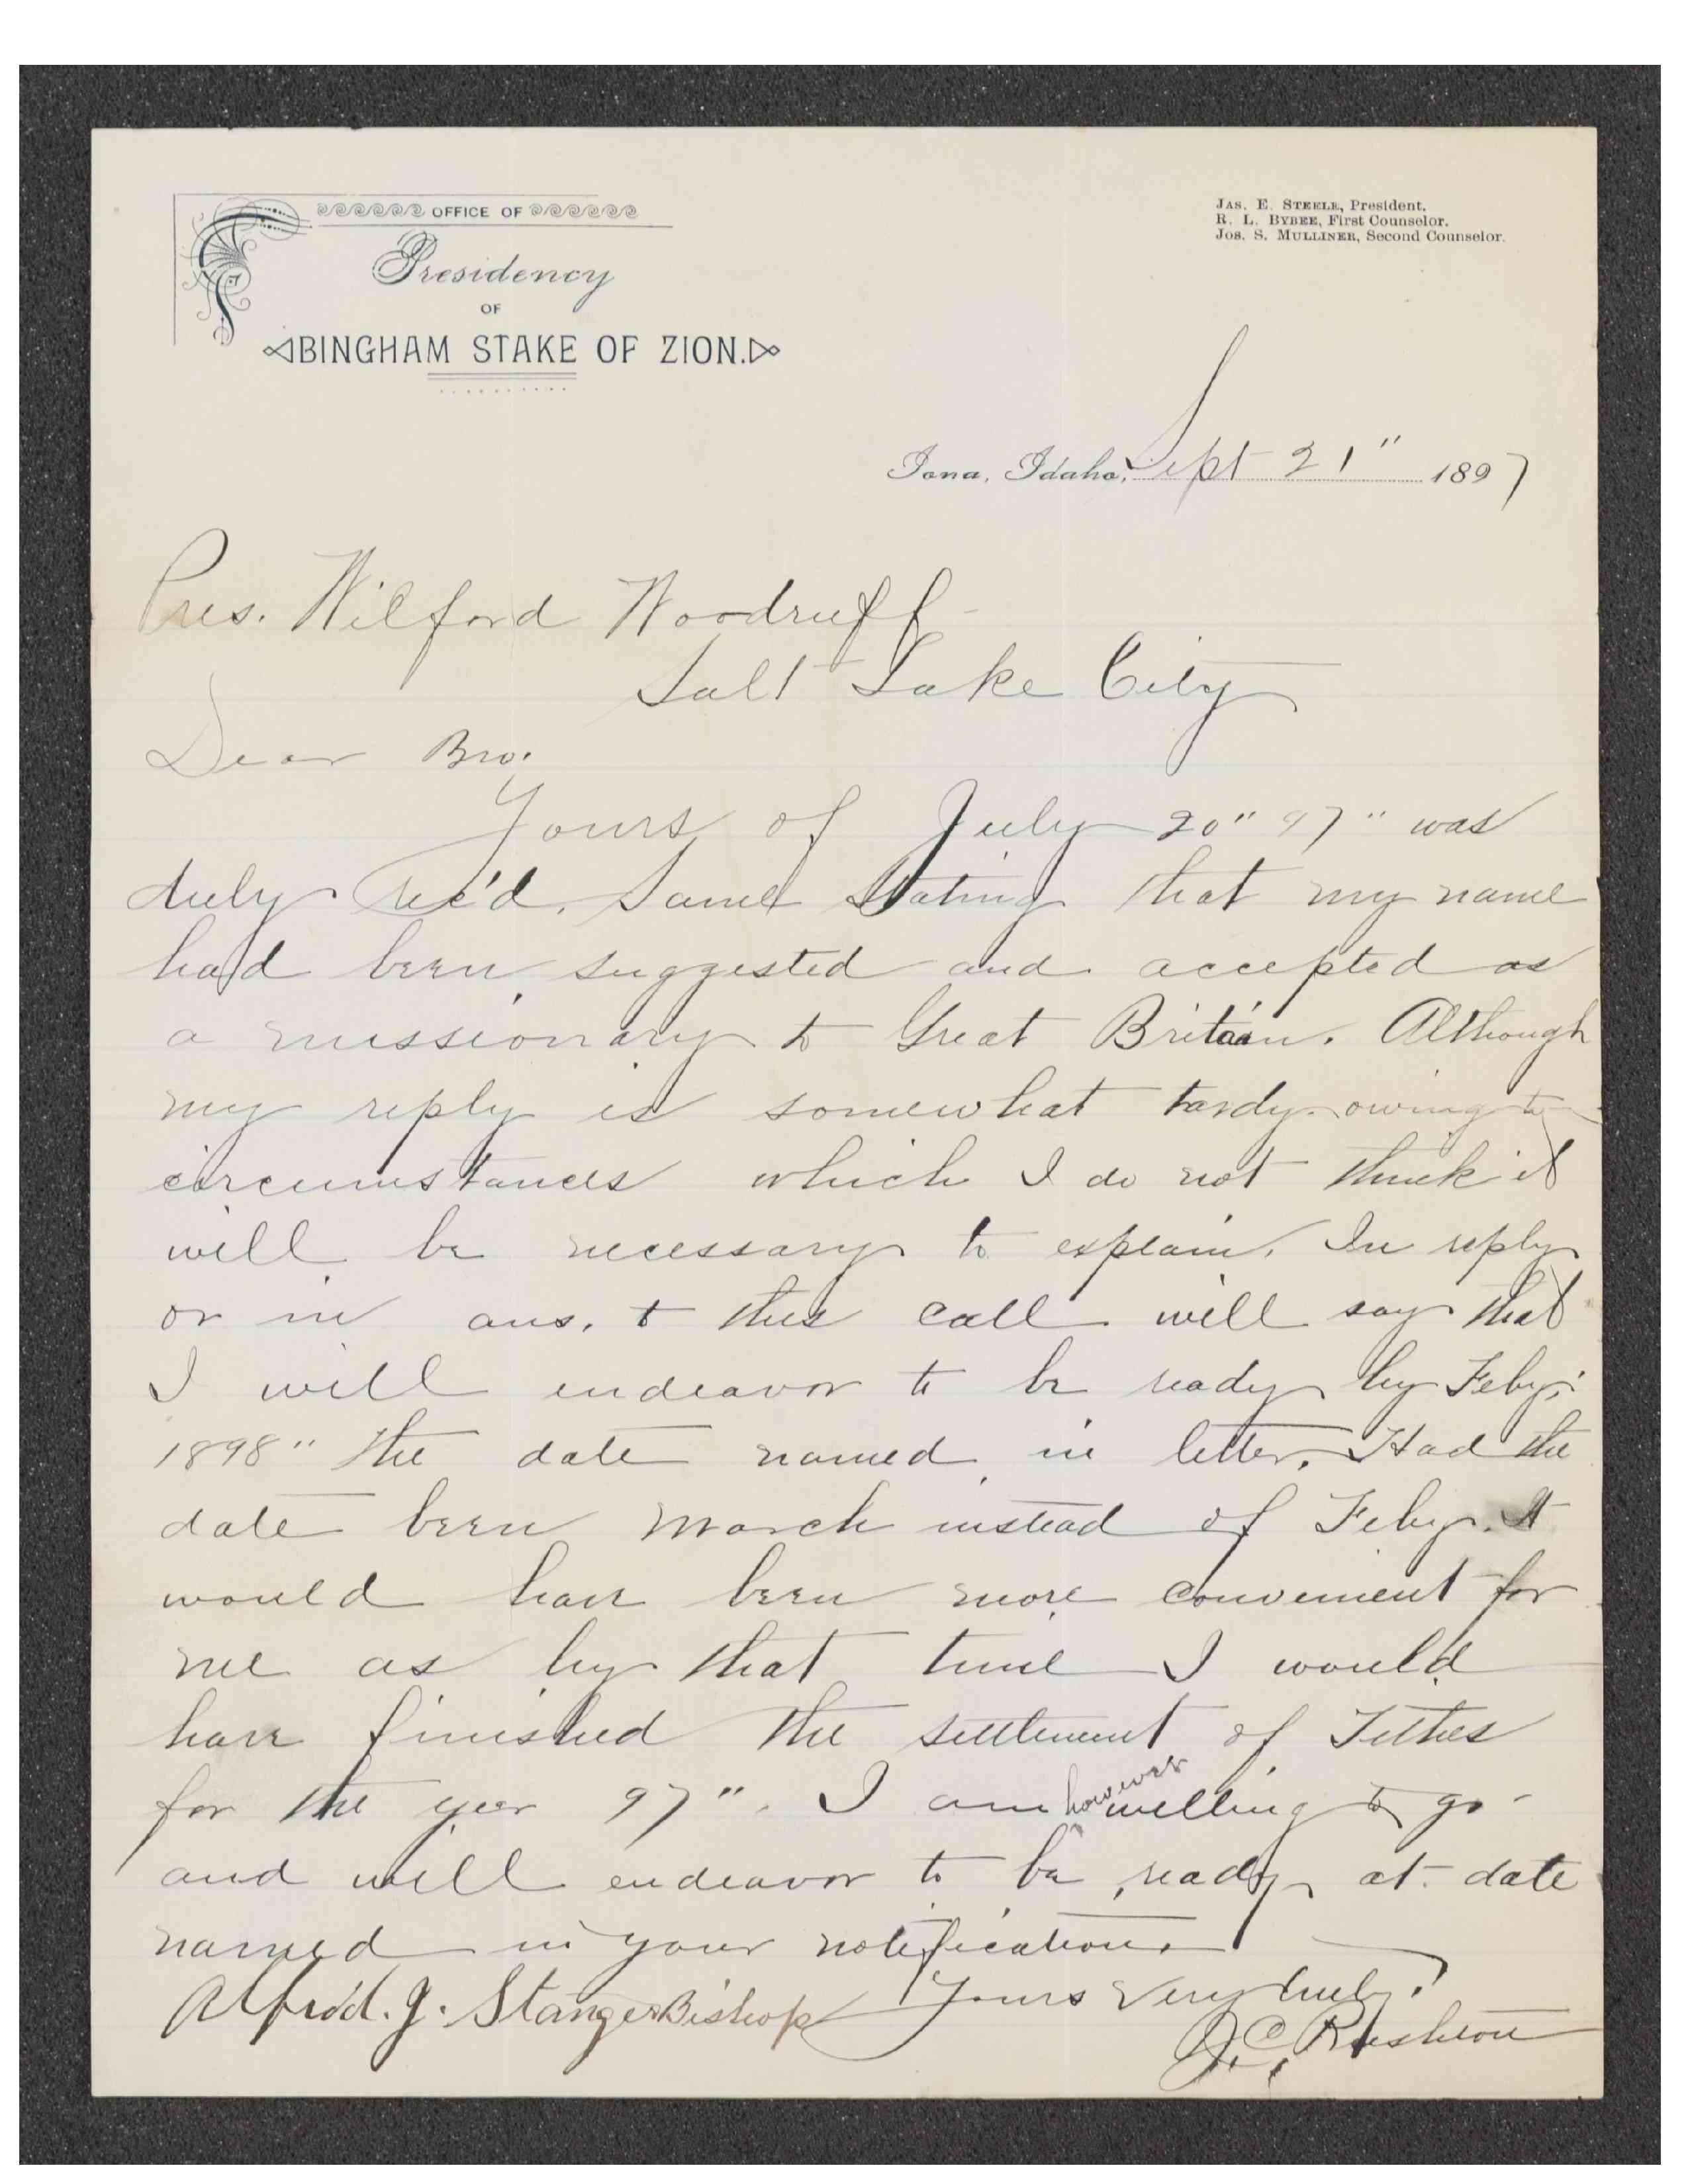 OFFICE OF
Presidency
OF
BINGHAM STAKE OF ZION.
JAS. E. STEELE, President,
R. L. BYBEE, First Counselor.
JOS. S. MULLINER, Second Counselor.
Iona, Idaho, Sept 21" 1897
Pres. Wilford Woodruff
Salt Lake City
Dear Bro.
Yours of July 20" 97" was
duly rec'd. Same stating that my name
had been suggested and accepted as
a missionary to Great Britain. Although
my reply is somewhat tardy owing to
circumstances which I do not think it
will be necessary to explain. In reply
or in ans. t this call will say that
I will endeavor to be ready by Feby.
1898" the date named in letter. Had the
date been March instead of Feby. It
would have been more convenient for
me as by that time I would
have finished the settlement of Tithes
for the year 97". I am however willing to go
and will endeavor to be ready at date
named in your notification.
Yours Very truly.
J. C. Rushton
Alfred. J. Stanger Bishop